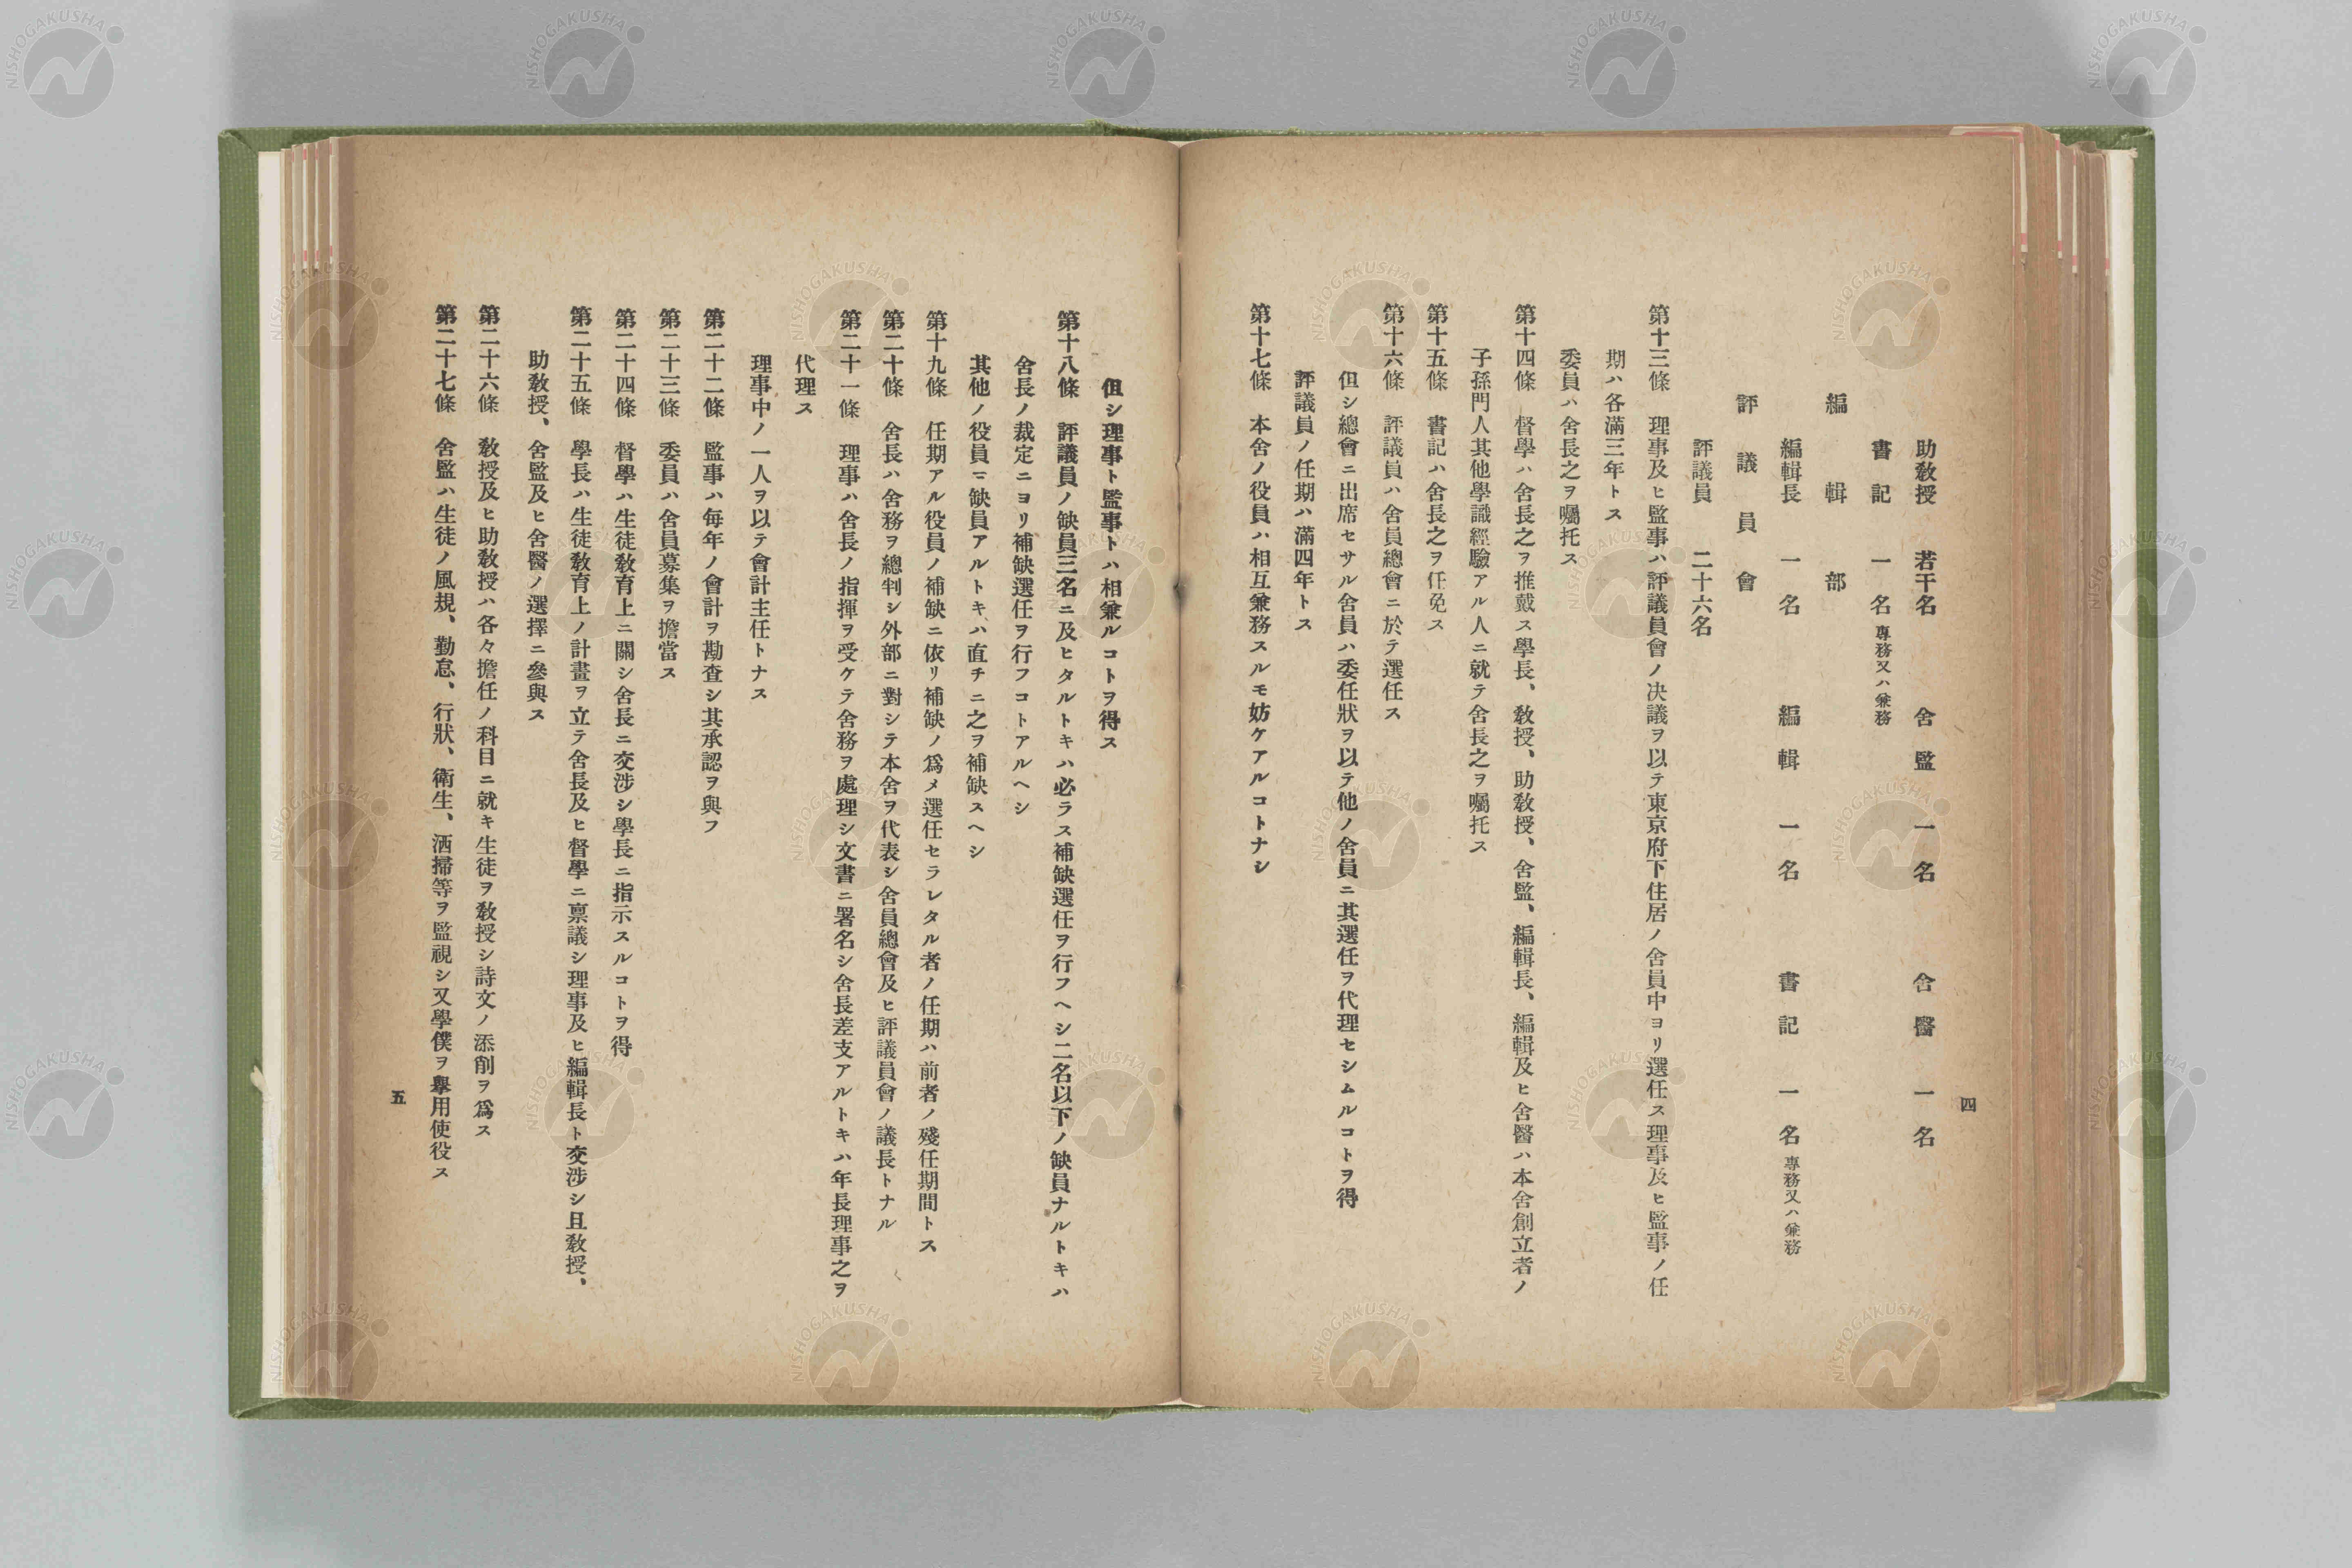 四
助敎授　若干名　　舍監　一名　　舍醫　一名
書記　一名 專務又ハ兼務
編輯部
編輯長　一名　　編輯　一名　　書記　一名 專務又ハ兼務
評議員會
評議員　二十六名
第十三條　理事及ヒ監事ハ評議員會ノ決議ヲ以テ東京府下住居ノ舍員中ヨリ選任ス理事及ヒ監事ノ任
期ハ各滿三年トス
委員ハ舍長之ヲ囑托ス
第十四條　督學ハ舍長之ヲ推戴ス學長、敎授、助敎授、舍監、編輯長、編輯及ヒ舍醫ハ本舍創立者ノ
子孫門人其他學識經驗アル人ニ就テ舍長之ヲ囑托ス
第十五條　書記ハ舍長之ヲ任免ス
第十六條　評議員ハ舍員總會ニ於テ選任ス
但シ總會ニ出席セサル舍員ハ委任狀ヲ以テ他ノ舍員ニ其選任ヲ代理セシムルコトヲ得
評議員ノ任期ハ滿四年トス
第十七條　本舍ノ役員ハ相互兼務スルモ妨ケアルコトナシ
但シ理事ト監事トハ相兼ルコトヲ得ス
第十八條　評議員ノ缺員三名ニ及ヒタルトキハ必ラス補缺選任ヲ行フヘシ二名以下ノ缺員ナルトキハ
舍長ノ裁定ニヨリ補缺選任ヲ行フコトアルヘシ
其他ノ役員ニ缺員アルトキハ直チニ之ヲ補缺スヘシ
第十九條　任期アル役員ノ補缺ニ依リ補缺ノ爲メ選任セラレタル者ノ任期ハ前者ノ殘任期間トス
第二十條　舍長ハ舍務ヲ總判シ外部ニ對シテ本舍ヲ代表シ舍員總會及ヒ評議員會ノ議長トナル
第二十一條　理事ハ舍長ノ指揮ヲ受ケテ舍務ヲ處理シ文書ニ署名シ舍長差支アルトキハ年長理事之ヲ
代理ス
理事中ノ一人ヲ以テ會計主任トナス
第二十二條　監事ハ每年ノ會計ヲ勘查シ其承認ヲ與フ
第二十三條　委員ハ舍員募集ヲ擔當ス
第二十四條　督學ハ生徒敎育上ニ關シ舍長ニ交涉シ學長ニ指示スルコトヲ得
第二十五條　學長ハ生徒敎育上ノ計畫ヲ立テ舍長及ヒ督學ニ禀議シ理事及ヒ編輯長ト交涉シ且敎授、
助敎授、舍監及ヒ舍醫ノ選擇ニ參與ス
第二十六條　敎授及ヒ助敎授ハ各々擔任ノ科目ニ就キ生徒ヲ敎授シ詩文ノ添削ヲ爲ス
第二十七條　舍監ハ生徒ノ風規、勤怠、行狀、衛生、洒掃等ヲ監視シ又學僕ヲ擧用使役ス
五
NISHOGAKUSHA